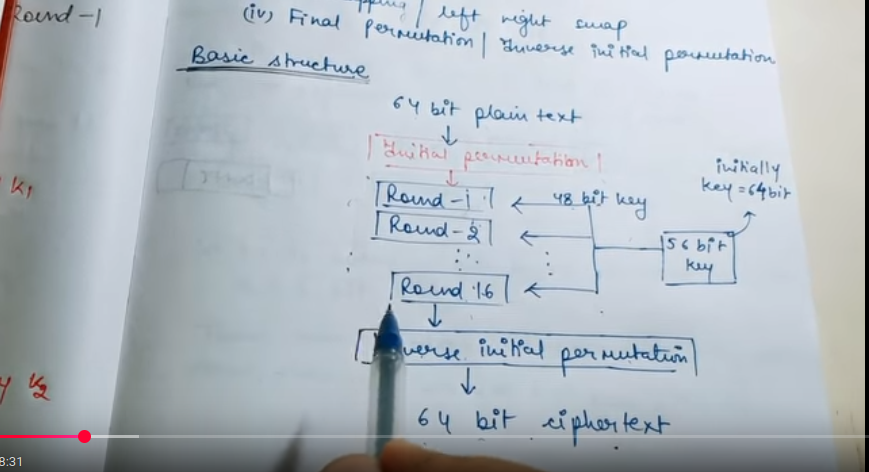 Round-1
left right swap
(iv) Final permutation | Inverse initial permutation
Basic structure
64 bit plain text
Initial permutation
initially
key = 64 bit
K1
Round-1
48 bit key
Round-2
56 bit
key
Round 16
verse initial permutation
K2
64 bit ciphertext
8:31